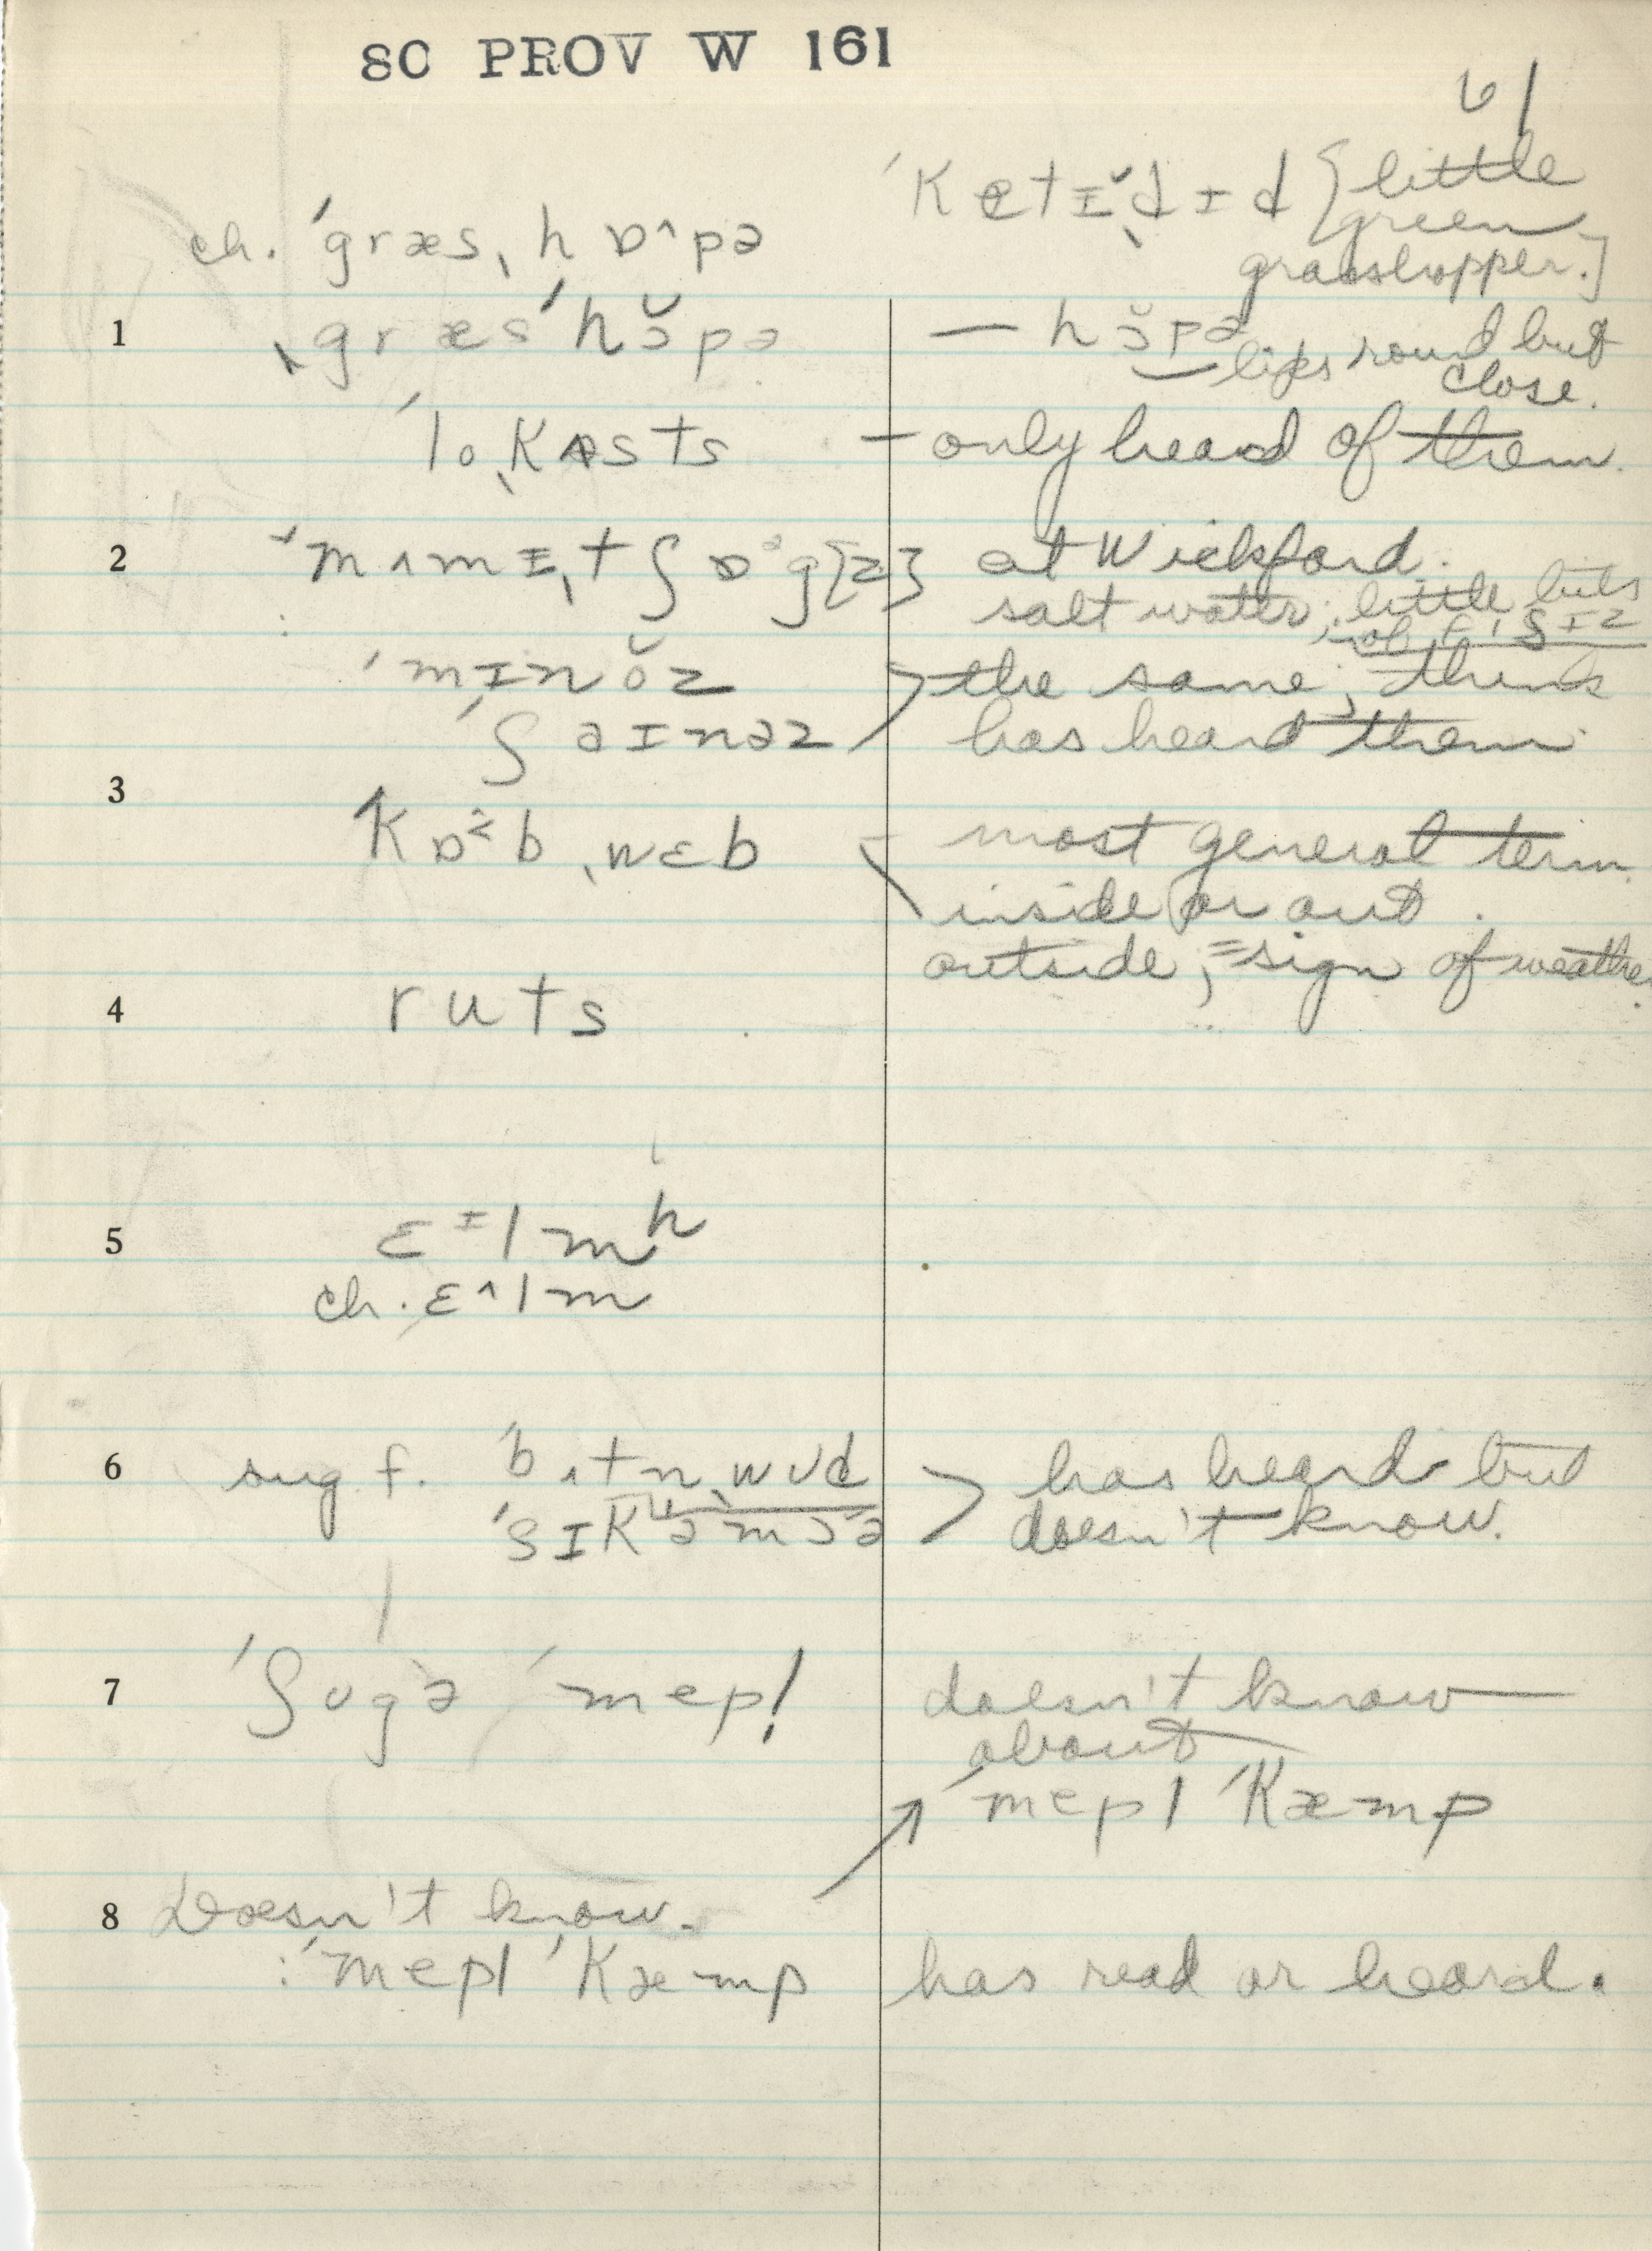 SC PROV W 161
61
ˈkætɪ̆ˌdɪd [little
green
grasshopper.]
ch. ˈgræsˌhɒ^pə
1 ˌgræsˈhɔ̆pə — hɔ̆pə
lips round but
close.
ˈloˌkəsts — only heard of them.
2 ˈmʌmɪˌtʃɒᵊg[z] at Wickford.
salt water; little bits
of fɪʃɪz
ˈmɪnŏz the same, thinks
ˈʃaɪnəz has heard them.
3
ˈkɒ^bˌwɛb – most general term.
inside or out.
outside, = sign of weather.
4 ruts
5 ɛᶦlmʰ
ch. ɛ^lm
6 sug f. ˈbʌtnˌwʊd > has heard but
ˈsɪkəmɔə doesn't know.
7 ˈʃʊgə ˈmepl doesn't know
about
ˈmepl ˈkæmp
8 Doesn't know.
: ˈmepl ˈkæmp has read or heard.